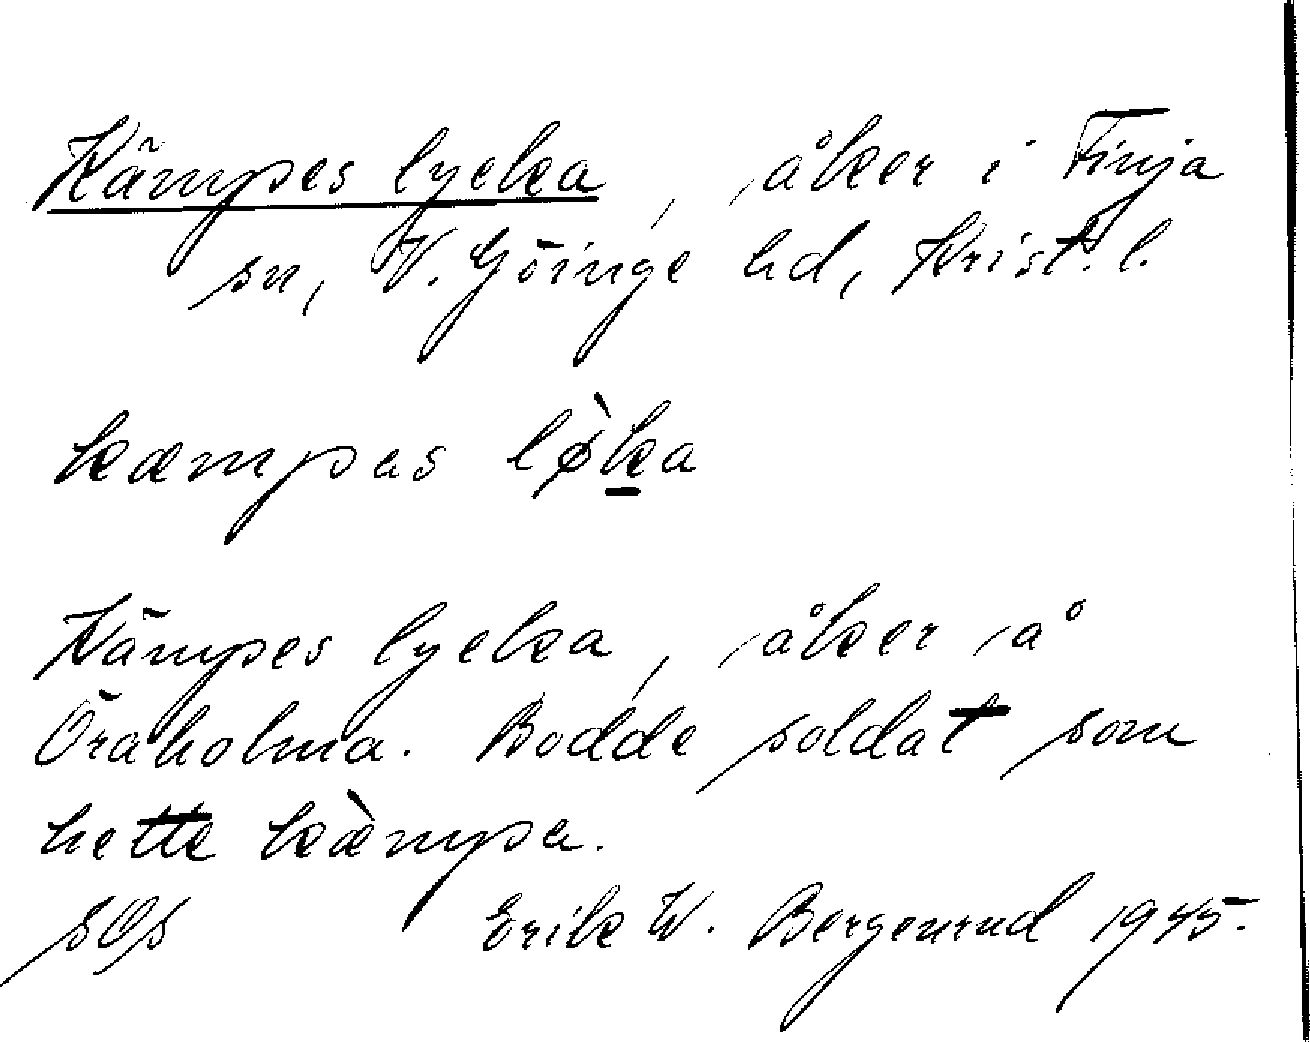 Kämpes lycka, åker i Finja
sn, V. Göinge hd, Krist. l.
kæmpəs lø̀ḵa
Kämpes lycka, åker å
Öraholma. Bodde soldat som
hette kæ̀mpə.
sOs Erik W. Bergenrud 1945.